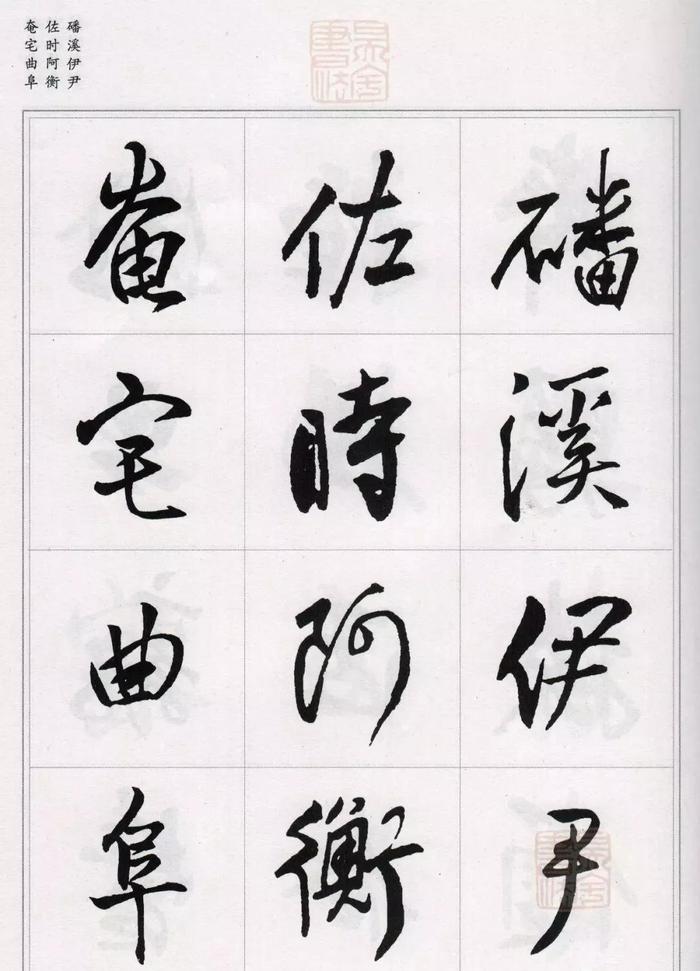 磻溪伊尹
佐时阿衡
奄宅曲阜
磻溪伊尹
佐時阿衡
奄宅曲阜